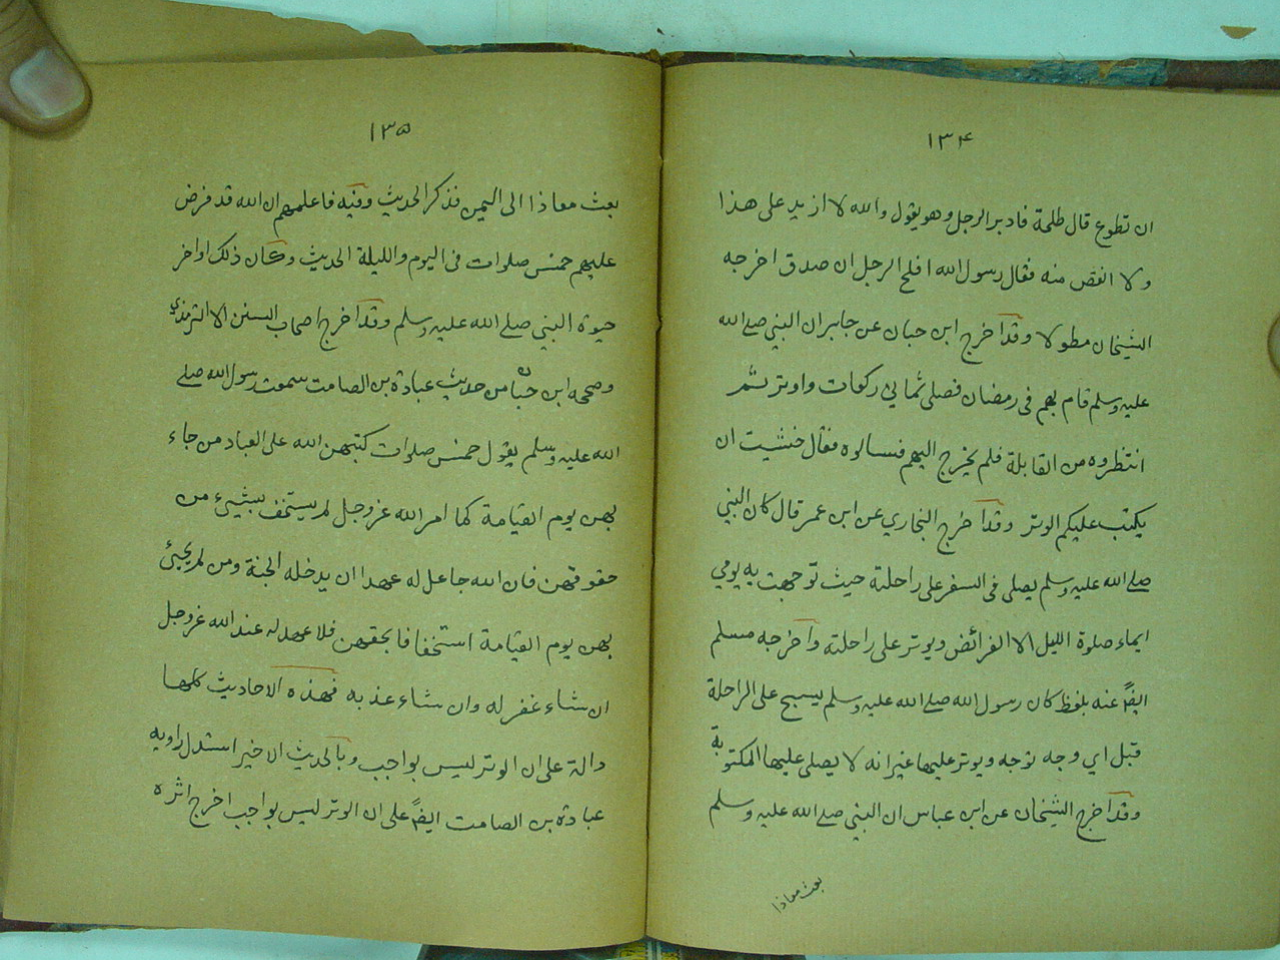 ۱۳۴
ان تطوع قال طلحة فادبر الرجل وهو يقول والله لا ازيد على هذا
ولا انقص منه فقال رسول الله افلح الرجل ان صدق اخرجه
الشيخان مطولا وقد اخرج ابن حبان عن جابر ان النبي صلے الله
عليه وسلم قام بهم فى رمضان فصلى ثمانى ركعات واوتر ثم
انتظروه من القابلة فلم يخرج اليهم فسالوه فقال خشيت ان
يكتب عليكم الوتر وقد اخرج البخاري عن ابن عمر قال كان النبي
صلے الله عليه وسلم يصلى فى السفر على راحلته حيث توجهت به يومي
ايماء صلوة الليل الا الفرائض ويوتر على راحلته واخرجه مسلم
ايضً عنه بلفظ كان رسول الله صلے الله عليه وسلم يسبح على الراحلة
قبل اي وجه توجه ويوتر عليها غير انه لا يصلى عليها المكتوبة
وقد اخرج الشيخان عن ابن عباس ان النبي صلے الله عليه وسلم
بعث معاذا
۱۳۵
بعث معاذا الى اليمن فذكر الحديث وفيه فاعلمهم ان الله قد فرض
عليهم خمس صلوات فى اليوم والليلة الحديث وكان ذلك اواخر
حيوة النبي صلے الله عليه وسلم وقد اخرج اصحاب السنن الا الترمذي
وصححه ابن حبان من حديث عبادة بن الصامت سمعت رسول الله صلے
الله عليه وسلم يقول خمس صلوات كتبهن الله على العباد من جاء
بهن يوم القيامة كما امر الله عز وجل لم يستخف بشيئ من
حقوقهن فان الله جاعل له عهدا ان يدخله الجنة ومن لم يجيئ
بهن يوم القيامة استخفافا بحقهن فلا عهد له عند الله عز وجل
ان شاء غفر له وان شاء عذبه فهذه الاحاديث كلها
دالة على ان الوتر ليس بواجب وبالحديث الاخير استدل راويه
عبادة بن الصامت ايضً على ان الوتر ليس بواجب اخرج اثره